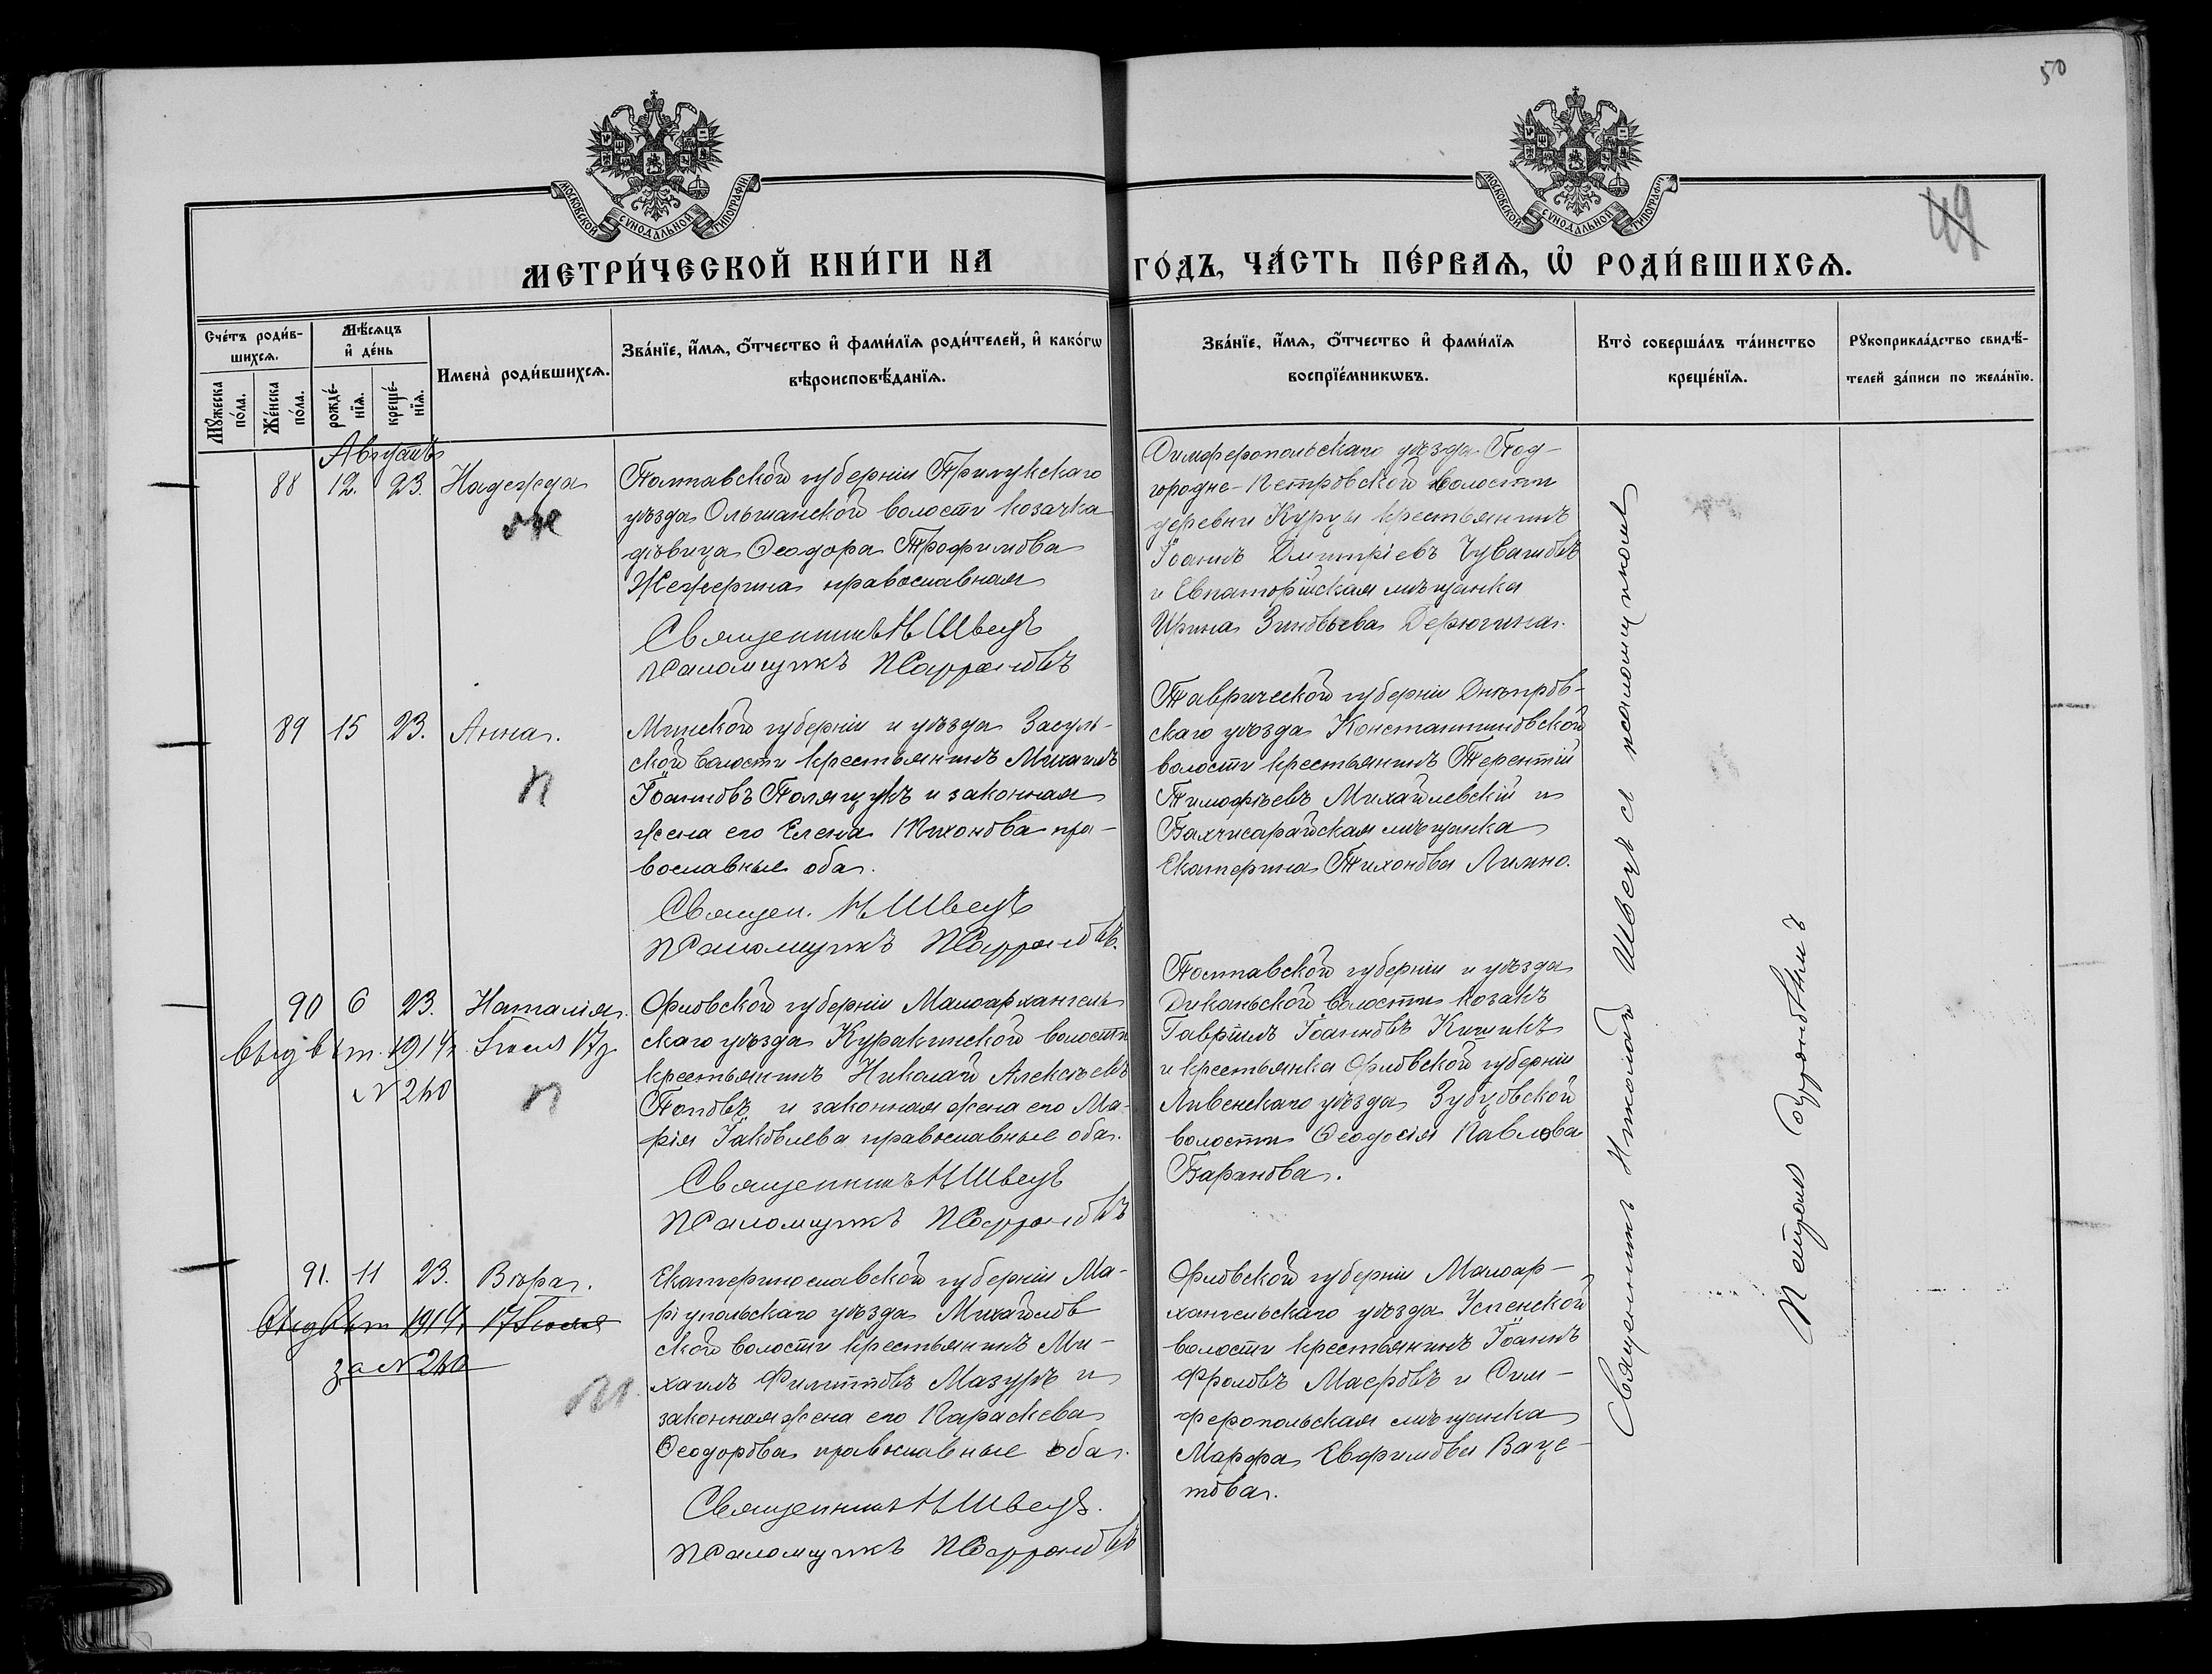 50
49
МОСКОВСКОЙ СѴНОДАЛЬНОЙ ТИПОГРАФІИ
МОСКОВСКОЙ СѴНОДАЛЬНОЙ ТИПОГРАФІИ
МЕТРИ́ЧЕСКОЙ КНИ́ГИ НА ГО́ДЪ, ЧА́СТЬ ПЕ́РВАѦ, Ѡ҆ РОДИ́ВШИХСѦ.
Сче́тъ роди́в-
шихсѧ.
Мꙋ́жеска
по́ла.
Же́нска
по́ла.
Мѣ́сѧцъ
и҆ де́нь
рожде́-
нїѧ.
креще́-
нїѧ.
И҆мена̀ роди́вшихсѧ.
Зва́нїе, и҆́мѧ, ѻ҆́тчество и҆ фами́лїѧ роди́телей, и҆ како́гѡ
вѣроисповѣ́данїѧ.
Зва́нїе, и҆́мѧ, ѻ҆́тчество и҆ фами́лїѧ
воспрїе́мникѡвъ.
Кто̀ соверша́лъ та́инство
креще́нїѧ.
Рꙋкоприкла́дство свидѣ́-
телей за́писи по жела́нїю.
Августъ
88 12. 23. Надежда
Полтавской губерніи Прилукскаго
уѣзда Ольшанской волости козачка
дѣвица Ѳеодора Трофимова
Нежерина православная
Священникъ Н Швецъ
Псаломщикъ П Сафроновъ
Симферопольскаго уѣзда Под-
городне-Петровской волости
деревни Курцы крестьянинъ
Іоаннъ Димитріевъ Чувашовъ
и Евпаторійская мѣщанка
Ирина Зиновьева Дерюгина.
89 15 23. Анна.
п
Минской губерніи и уѣзда Засуль-
ской волости крестьянинъ Михаилъ
Іоанновъ Полящукъ и законная
жена его Елена Тихонова пра-
вославные оба.
Священ. Н Швецъ
Псаломщикъ П Сафроновъ.
Таврической губерніи Днѣпров-
скаго уѣзда Константиновской
волости крестьянинъ Терентій
Тимофѣевъ Михайлевскій и
Бахчисарайская мѣщанка
Екатерина Тихонова Лимно.
90 6 23. Наталія.
выд в м. 1914 г. Іюля 17 д.
N 240
п
Орловской губерніи Малоархангель
скаго уѣзда Куракинской волости
крестьянинъ Николай Алексѣевъ
Поповъ и законная жена его Ма-
рія Іаковлева православные оба.
Священникъ Н Швецъ
Псаломщикъ П Сафроновъ
Полтавской губерніи и уѣзда
Диканьской волости козакъ
Гавріилъ Іоанновъ Кишикъ
и крестьянка Орловской губерніи
Ливенскаго уѣзда Зубцовской
волости Ѳеодосія Павлова
Баранова.
91. 11 23. Вѣра.
1914 г. 17 Іюля
за N 240
п
Екатеринославской губерніи Ма-
ріупольскаго уѣзда Михайлов
ской волости крестьянинъ Ми-
хаилъ Филипповъ Мазуръ и
законная жена его Параскева
Ѳеодорова православные оба.
Священникъ Н Швецъ.
Псаломщикъ П Сафроновъ
Орловской губерніи Малоар-
хангельскаго уѣзда Успенской
волости крестьянинъ Іоаннъ
Фроловъ Маеровъ и Сим-
феропольская мѣщанка
Марфа Евфимова Ваце-
това.
Священникъ Николай Швецъ съ псаломщикомъ
Петромъ Сафроновымъ